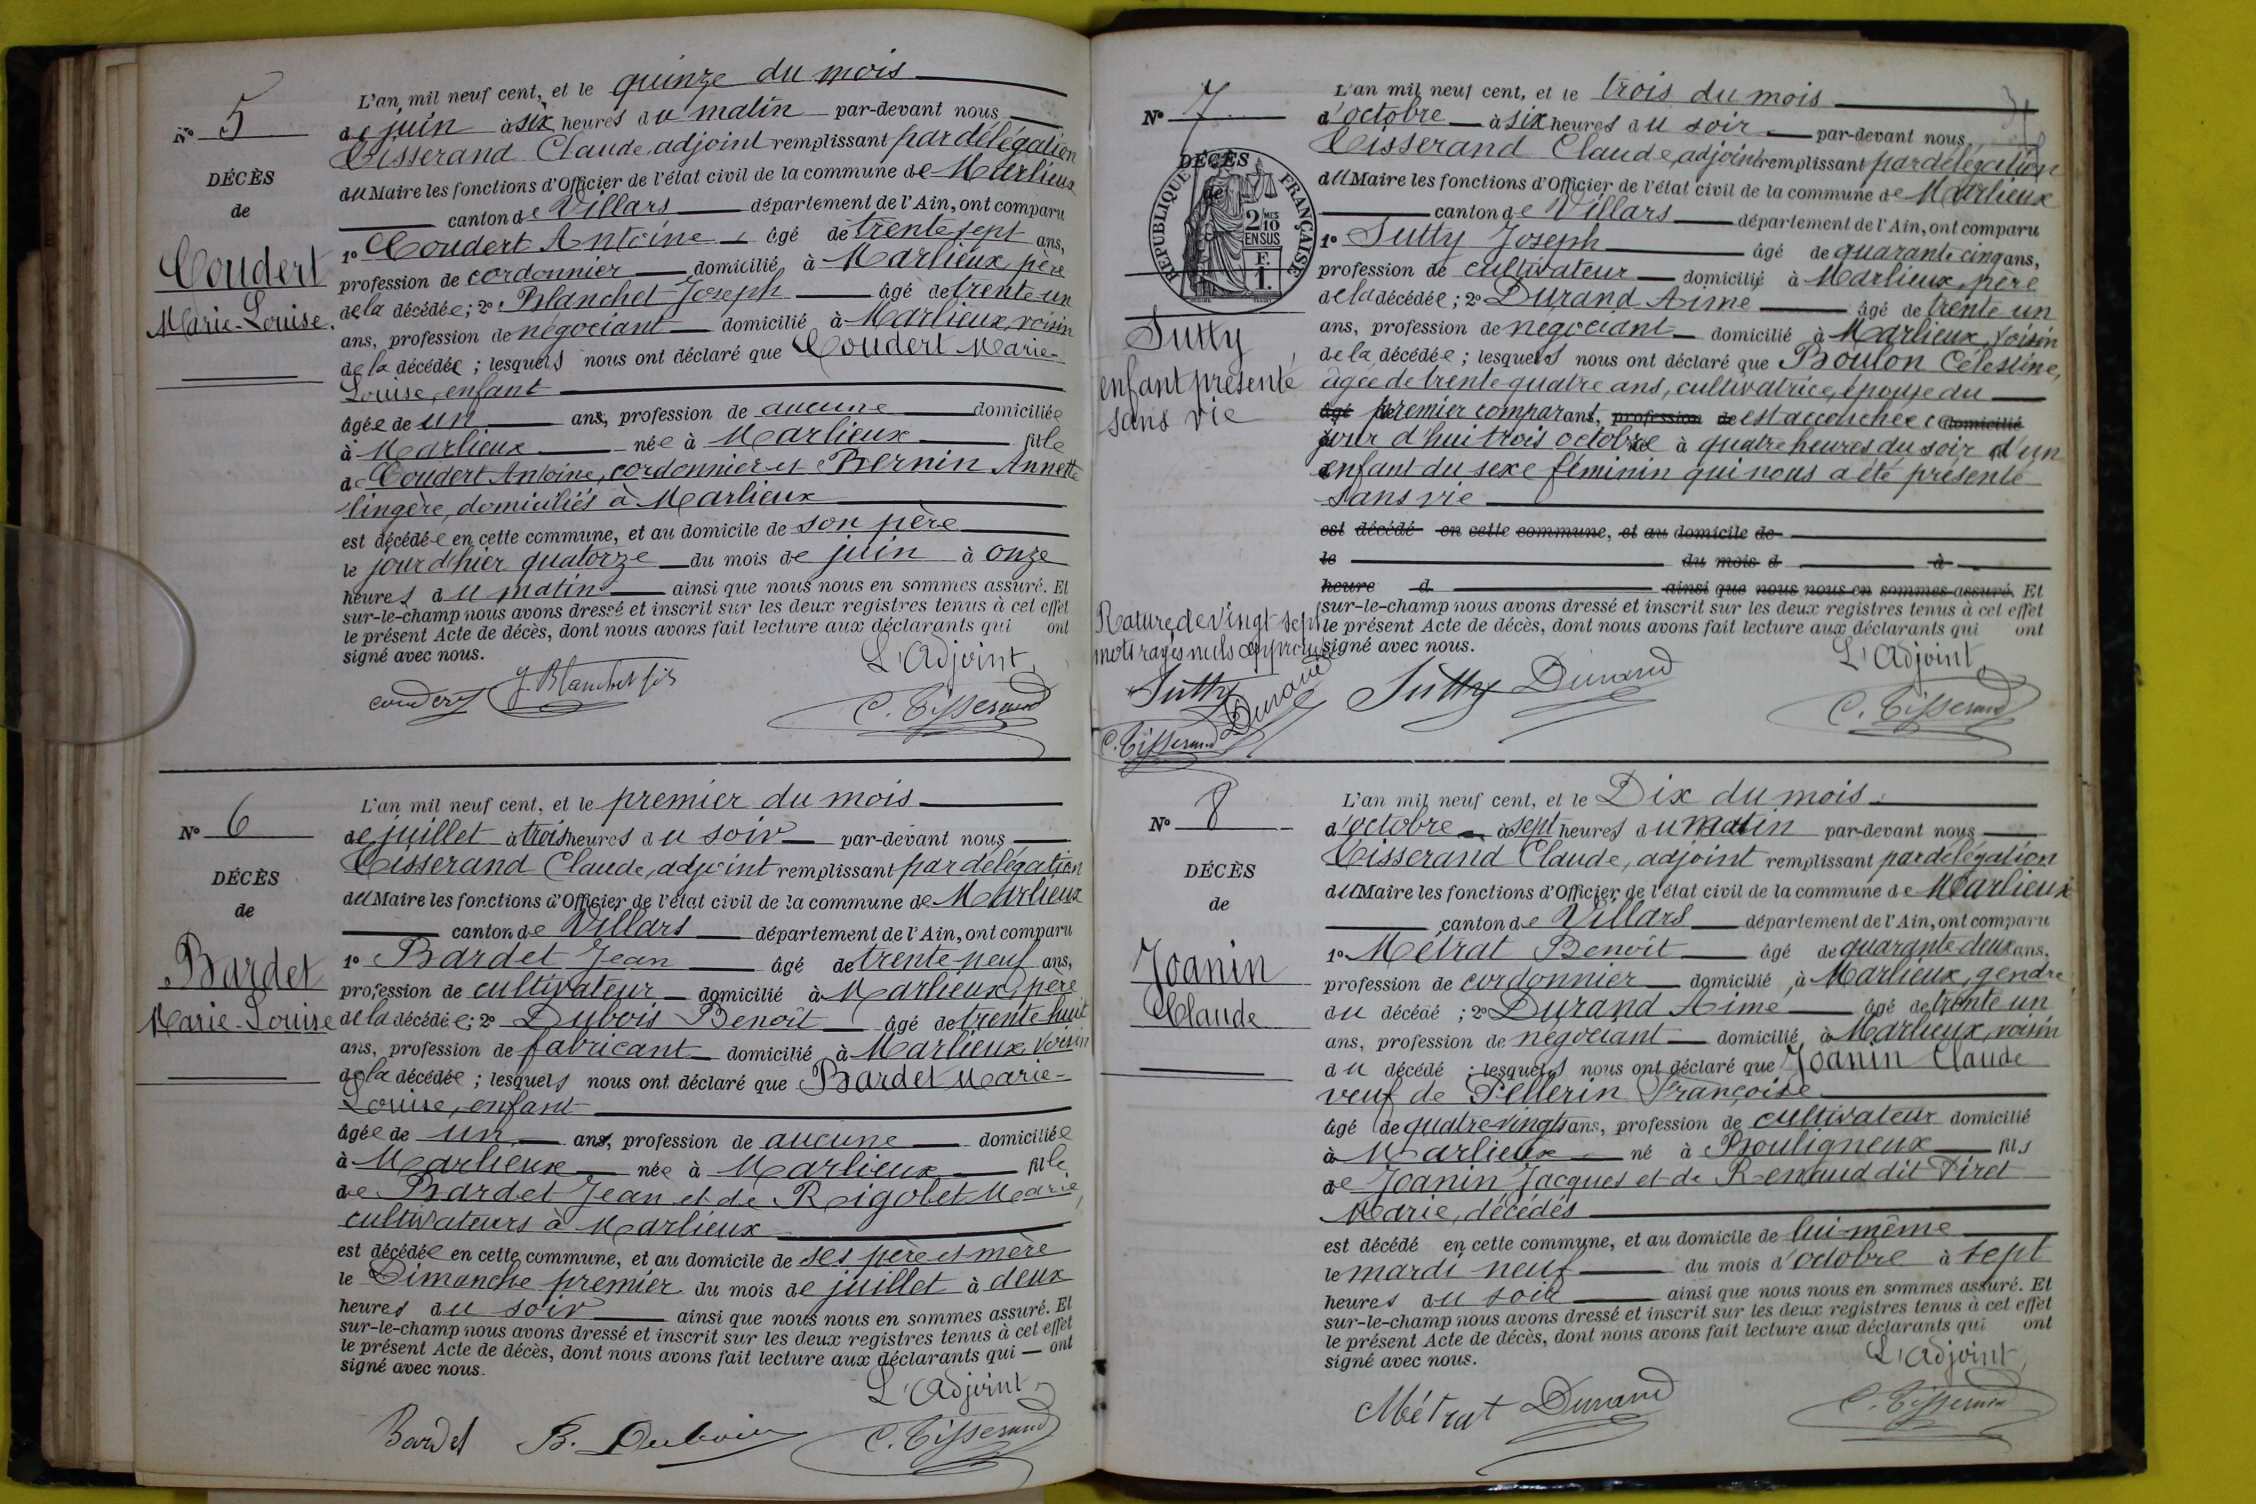 N° 5
DÉCÈS
de
Coudert
Marie-Louise.
L'an mil neuf cent, et le quinze du mois
de juin à six heures du matin par-devant nous
Tisserand Claude, adjoint remplissant par délégation
du Maire les fonctions d'Officier de l'état civil de la commune de Marlieux
canton de Villars département de l'Ain, ont comparu
1° Coudert Antoine âgé de trente sept ans,
profession de cordonnier domicilié à Marlieux, père
de la décédée; 2° Blanchet Joseph âgé de trente un
ans, profession de négociant domicilié à Marlieux, voisin
de la décédée; lesquels nous ont déclaré que Coudert Marie-
Louise, enfant
âgée de un ans, profession de aucune domiciliée
à Marlieux née à Marlieux fille
de Coudert Antoine, cordonnier et Bernin Annette
lingère, domiciliés à Marlieux
est décédée en cette commune, et au domicile de son père
le jour d'hier quatorze du mois de juin à onze
heures du matin ainsi que nous nous en sommes assuré. Et
sur-le-champ nous avons dressé et inscrit sur les deux registres tenus à cet effet
le présent Acte de décès, dont nous avons fait lecture aux déclarants qui ont
signé avec nous.
L'Adjoint,
coudert J. Blanchet fils C. Tisserand
N° 6
DÉCÈS
de
Bardet
Marie-Louise
L'an mil neuf cent, et le premier du mois
de juillet à trois heures du soir par-devant nous
Tisserand Claude, adjoint remplissant par délégation
du Maire les fonctions d'Officier de l'état civil de la commune de Marlieux
canton de Villars département de l'Ain, ont comparu
1° Bardet Jean âgé de trente neuf ans,
profession de cultivateur domicilié à Marlieux, père
de la décédée; 2° Dubois Benoît âgé de trente huit
ans, profession de fabricant domicilié à Marlieux, voisin
de la décédée; lesquels nous ont déclaré que Bardet Marie-
Louise, enfant
âgée de un ans, profession de aucune domiciliée
à Marlieux née à Marlieux fille
de Bardet Jean et de Rigolet Marie,
cultivateurs à Marlieux
est décédée en cette commune, et au domicile de ses père et mère
le Dimanche premier du mois de juillet à deux
heures du soir ainsi que nous nous en sommes assuré. Et
sur-le-champ nous avons dressé et inscrit sur les deux registres tenus à cet effet
le présent Acte de décès, dont nous avons fait lecture aux déclarants qui ont
signé avec nous.
L'Adjoint,
Bardet B. Dubois C. Tisserand
N° 7
DÉCÈS
de
RÉPUBLIQUE FRANÇAISE
2/10 MES
EN SUS
F.
1.
Sutty
enfant présenté
sans vie
L'an mil neuf cent, et le trois du mois
d'octobre à six heures du soir par-devant nous
Tisserand Claude, adjoint remplissant par délégation
du Maire les fonctions d'Officier de l'état civil de la commune de Marlieux
canton de Villars département de l'Ain, ont comparu
1° Sutty Joseph âgé de quarante cinq ans,
profession de cultivateur domicilié à Marlieux, père
de la décédée; 2° Durand Aimé âgé de trente un
ans, profession de négociant domicilié à Marlieux, voisin
de la décédée; lesquels nous ont déclaré que Boulon Célestine,
âgée de trente quatre ans, cultivatrice, épouse du
âgé de premier comparant, profession de est accouchée ce domicilié
jour d'hui trois octobre à quatre heures du soir d'un
enfant du sexe féminin qui nous a été présenté
sans vie
est décédé en cette commune, et au domicile de
le du mois d à
heure d ainsi que nous nous en sommes assuré. Et
sur-le-champ nous avons dressé et inscrit sur les deux registres tenus à cet effet
le présent Acte de décès, dont nous avons fait lecture aux déclarants qui ont
signé avec nous.
Rature de vingt sept
mots rayés nuls approuvée
Sutty Durand
C. Tisserand
L'Adjoint,
Sutty Durand C. Tisserand
N° 8
DÉCÈS
de
Joanin
Claude
L'an mil neuf cent, et le Dix du mois
d'octobre à sept heures du matin par-devant nous
Tisserand Claude, adjoint remplissant par délégation
du Maire les fonctions d'Officier de l'état civil de la commune de Marlieux
canton de Villars département de l'Ain, ont comparu
1° Métrat Benoît âgé de quarante deux ans,
profession de cordonnier domicilié à Marlieux, gendre
du décédé; 2° Durand Aimé âgé de trente un
ans, profession de négociant domicilié à Marlieux, voisin
du décédé; lesquels nous ont déclaré que Joanin Claude
veuf de Pellerin Françoise
âgé de quatre-vingts ans, profession de cultivateur domicilié
à Marlieux né à Bouligneux fils
de Joanin Jacques et de Renaud dit Piret
Marie, décédés
est décédé en cette commune, et au domicile de lui-même
le mardi neuf du mois d'octobre à sept
heures du soir ainsi que nous nous en sommes assuré. Et
sur-le-champ nous avons dressé et inscrit sur les deux registres tenus à cet effet
le présent Acte de décès, dont nous avons fait lecture aux déclarants qui ont
signé avec nous.
L'Adjoint,
Métrat Durand C. Tisserand